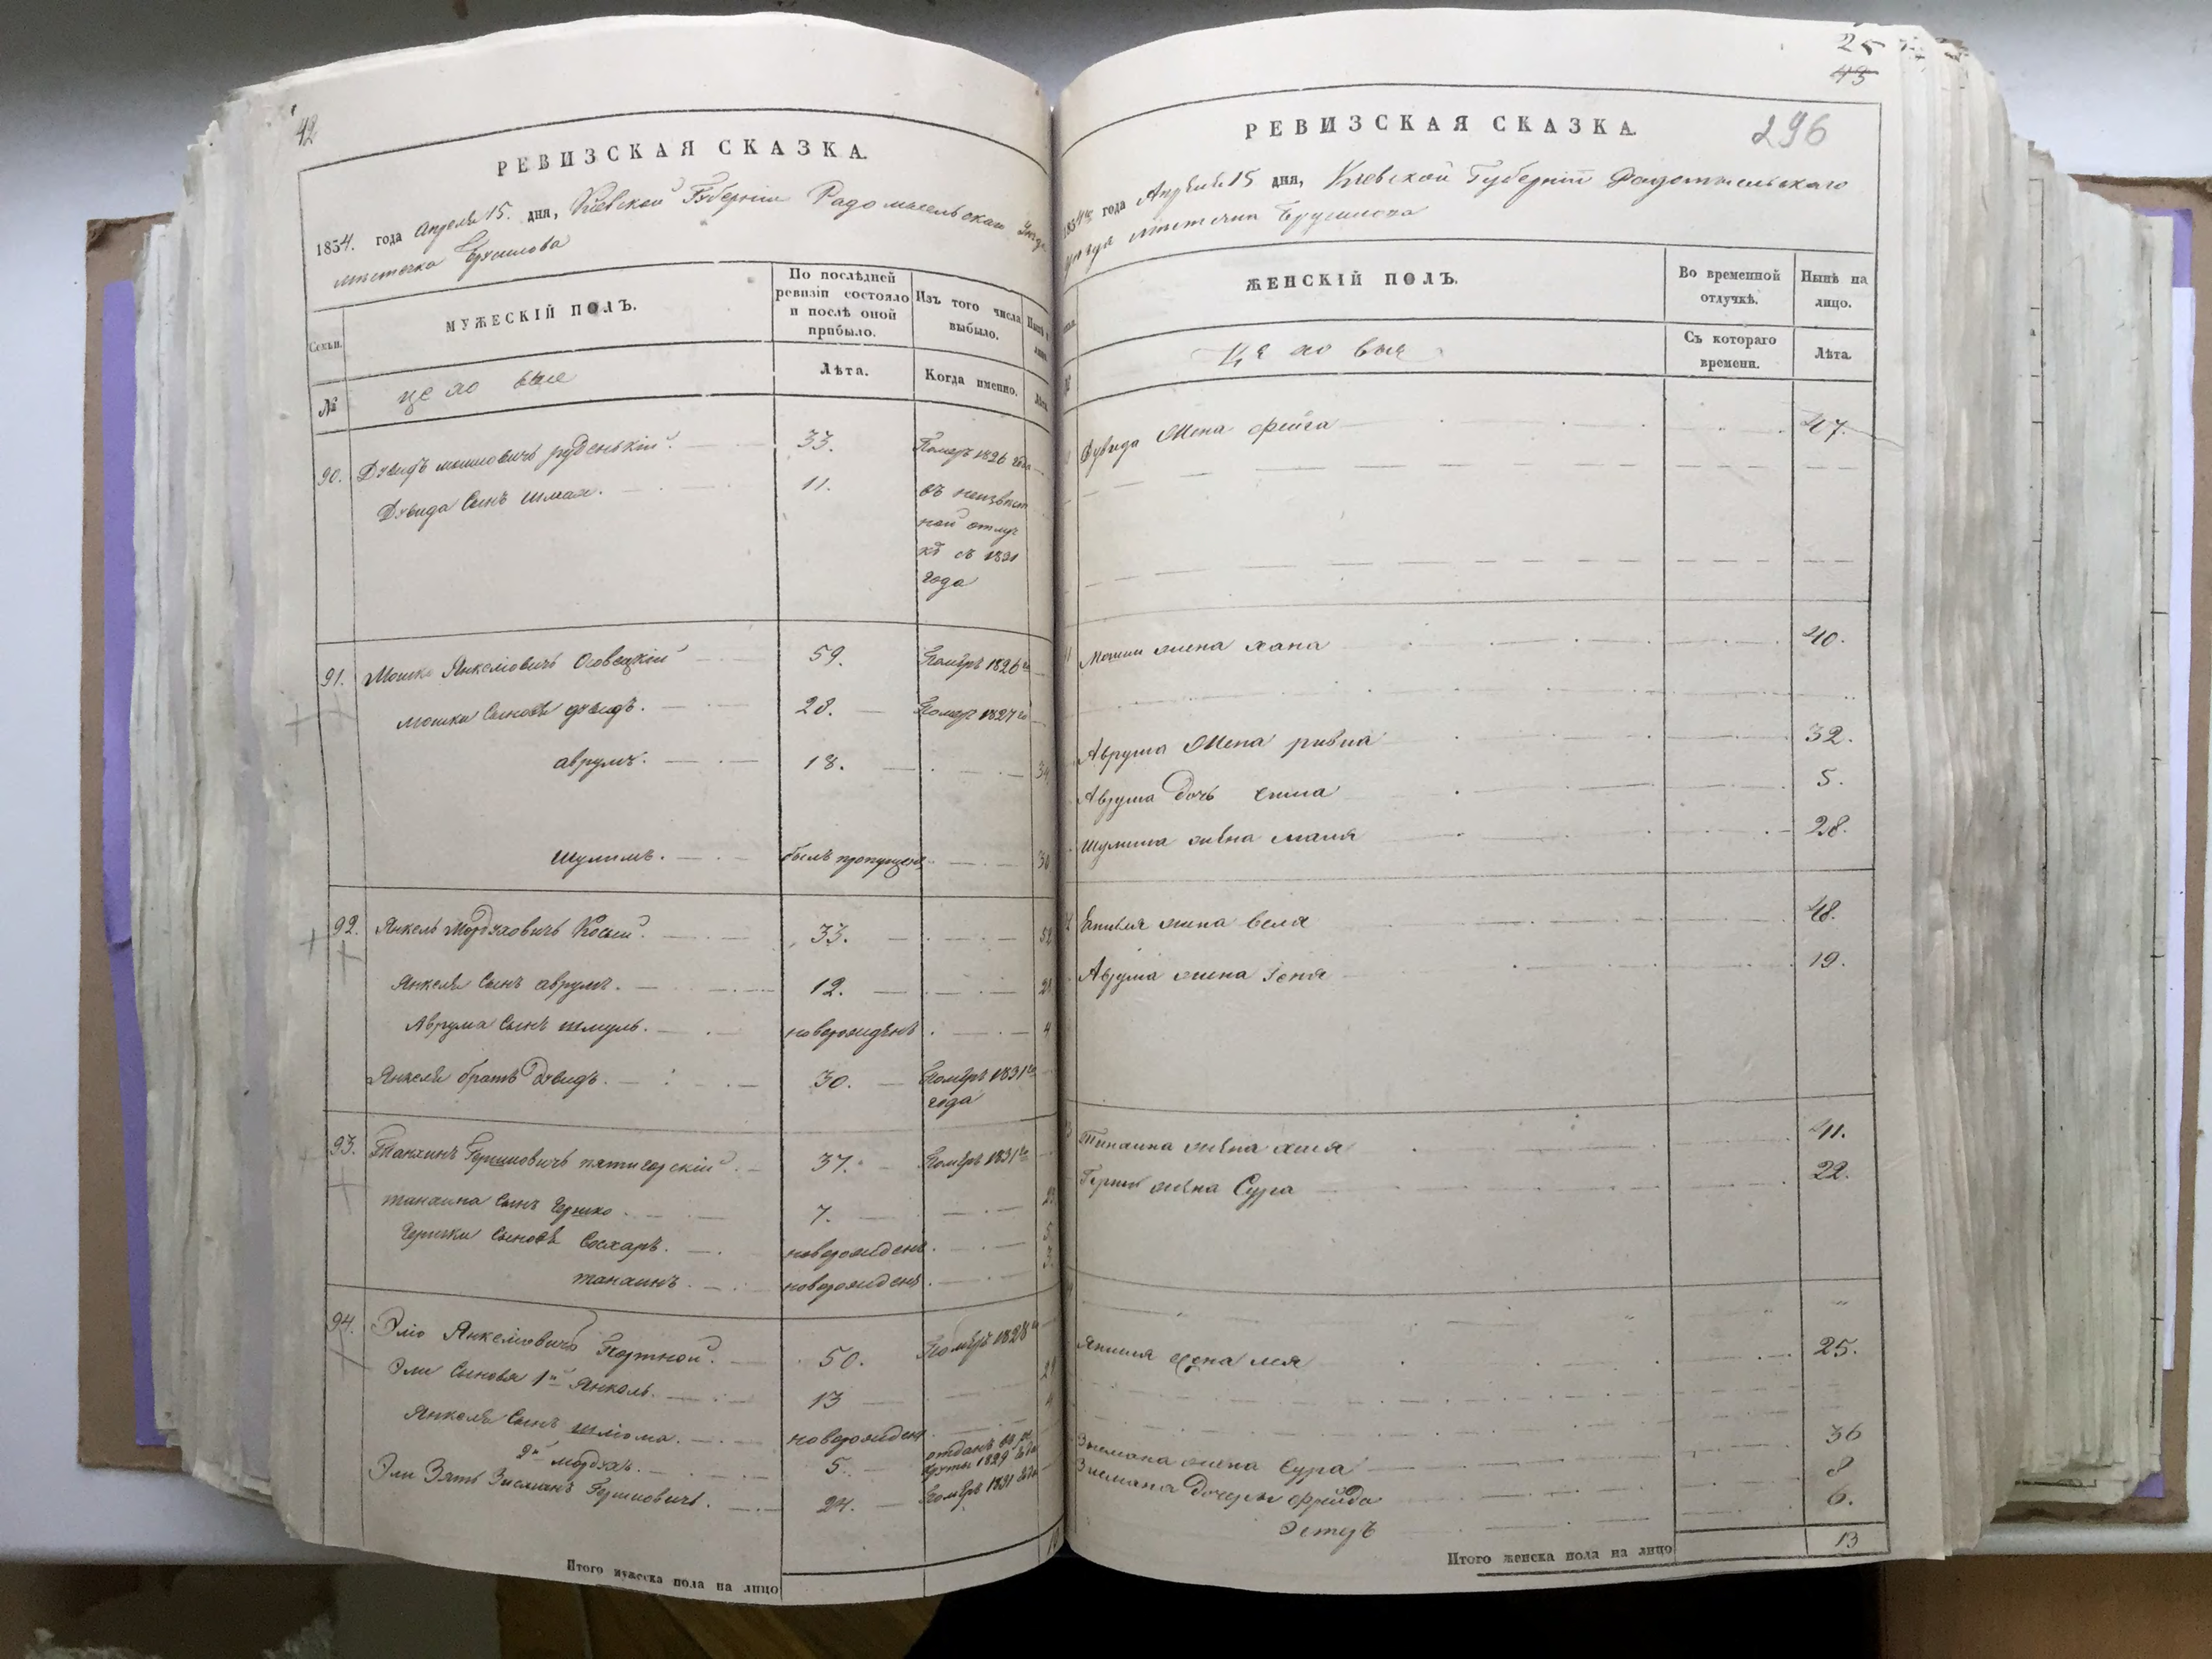 42
РЕВИЗСКАЯ СКАЗКА.
1834. года Апреля 15. дня, Киевской Губернии Радомысельскаго
местечка
Семьи.
МУЖЕСКІЙ ПОЛЪ.
По послѣдней
ревизіи состояло
и послѣ оной
прибыло.
Изъ того числа
выбыло.
№
Лѣта.
Когда именно.
Лѣта
90. Дувидъ Мошковичъ руденькій 33. Померъ 1826 года
Дувида Сынъ Шмая. 11. въ неизвѣст
ной отлуч
кѣ съ 1831
года
91. Мошко Янкеліовичъ Осовецкій 59. Помѣръ 1826 го
мошки Сыновя дувидъ. 28. Помер 1827 го
аврумъ. 18. 34
Шулимъ. былъ пропущенъ 30
92. Янкель Мордковичъ 33. 52
Янкеля Сынъ аврумъ. 12.
Аврума Сынъ шмуль. новорожденъ 4
Янкеля братъ Дувидъ. 30. Помѣръ 1831 го
года
93. Танхинъ Гершковичъ пятигорскій 37. Помѣръ 1831 го
танхина Сынъ Гершко. 7.
Гершки Сыновя Сахаръ. новорожденъ 5
танхинъ. новорожденъ
94. Эліо Янкеліовичъ Портной. 50. Помѣръ 1828 го
Эли Сыновя 1й Янкель. 13
Янкеля Сынъ шліома. новорожден 4
2й мордхъ. 5. отданъ въ ре
круты 1829 года
Эли Зять Зисманъ Гершковичъ. 24. Помѣръ 1831 года
Итого мужеска пола на лицо
25
43
296
РЕВИЗСКАЯ СКАЗКА.
1834 года Апрѣля 15 дня, Киевской Губерніи Радомысельскаго
уезда местечка Брусилова
ЖЕНСКІЙ ПОЛЪ.
Во временной
отлучкѣ.
Нынѣ на
лицо.
Съ котораго
времени.
Лѣта.
Дувида Жена Фейга 47.
Мошки жена хана 40.
Аврума Жена ривка 32.
Аврума Дочь 5.
Шулима жена маля 28.
Янкеля жена веля 48.
Аврума жена Геня 19.
Танхина жена хая 41.
Гершки жена Сура 22.
Янкеля жена лея 25.
Зисмана жена Сура 36
Зисмана Дочери Фрейда 8
Эстеръ 6.
Итого женска пола на лицо 13